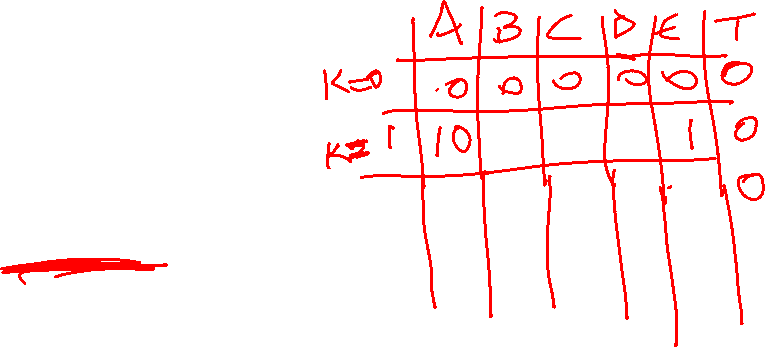 A B C D E T
K=0 0 0 0 0 0 0
K=1 10 1 0
0